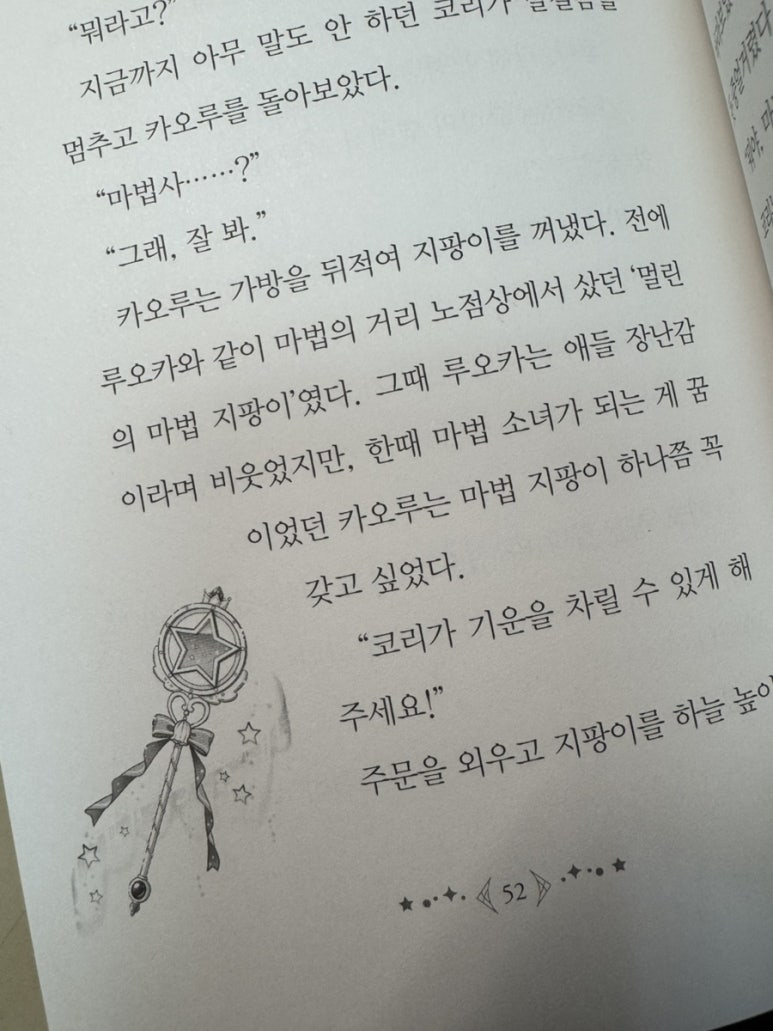 “뭐라고?”
지금까지 아무 말도 안 하던 코리가
멈추고 카오루를 돌아보았다.
“마법사……?”
“그래, 잘 봐.”
카오루는 가방을 뒤적여 지팡이를 꺼냈다. 전에
루오카와 같이 마법의 거리 노점상에서 샀던 ‘멀린
의 마법 지팡이’였다. 그때 루오카는 애들 장난감
이라며 비웃었지만, 한때 마법 소녀가 되는 게 꿈
이었던 카오루는 마법 지팡이 하나쯤 꼭
갖고 싶었다.
“코리가 기운을 차릴 수 있게 해
주세요!”
주문을 외우고 지팡이를 하늘 높이
52